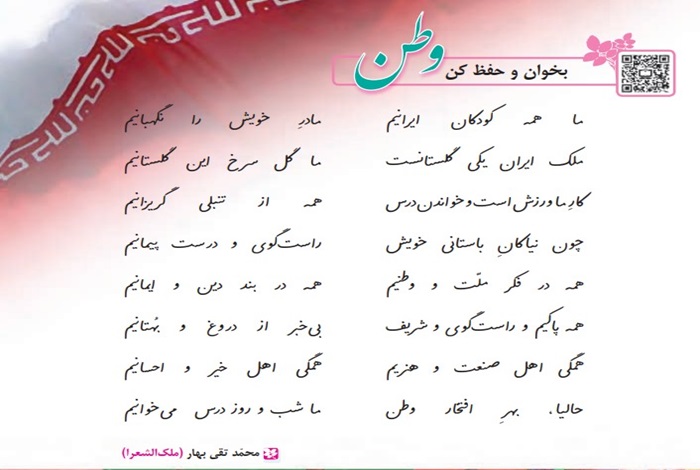 بخوان و حفظ کن
وطن
ما همه کودکان ایرانیم مادرِ خویش را نگهبانیم
ملک ایران یکی گلستانست ما گل سرخ این گلستانیم
کارِ ما ورزش است و خواندن درس همه از تنبلی گریزانیم
چون نیاکانِ باستانی خویش راست‌گوی و درست پیمانیم
همه در فکر ملّت و وطنیم همه در بند دین و ایمانیم
همه پاکیم و راست‌گوی و شریف بی‌خبر از دروغ و بُهتانیم
همگی اهل صنعت و هنریم همگی اهل خیر و احسانیم
حالیا، بهرِ افتخار وطن ما شب و روز درس می‌خوانیم
محمّد تقی بهار (ملک‌الشعرا)